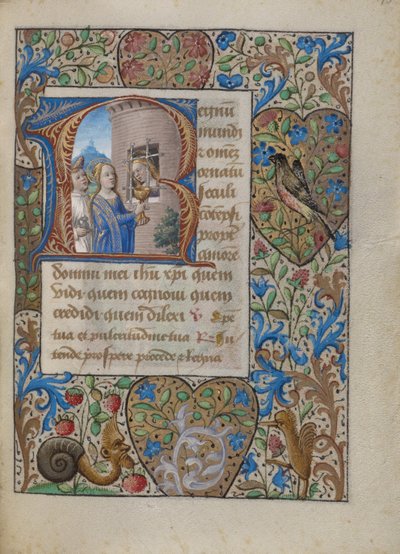 Regnũ
mundi
⁊ omẽ
ornatũ
seculi
cõtẽpsi
propt̃
amorẽ
domini mei ihũ xpi quem
vidi quem cognoui quem
credidi quem dilexi
tua et pulcritudine tua In
tende prospere procede ⁊ regna